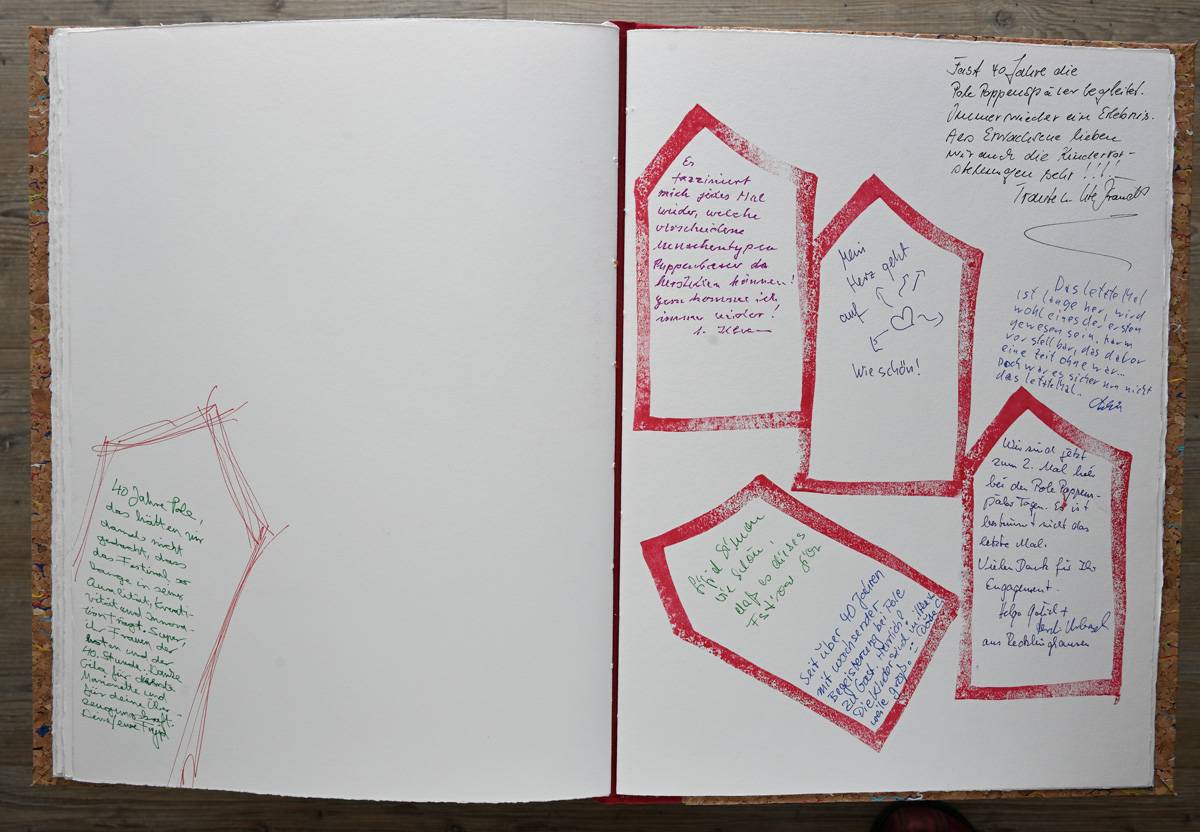 40 Jahre Pole,
das hätten wir
damals nicht
gedacht, dass
das Festival so
lange in seine
und Innova-
tion trägt. Super,
ihr Frauen der
ersten und der
40. Stunde. Danke
für deine
Marionette und
für deine
Es
fasziniert
mich jedes Mal
wieder, welche
verschiedene
Menschentypen
Puppenbauer da
herstellen können!
gern komme ich
immer wieder!
Mein
Herz geht
auf
Wie schön!
Fast 40 Jahre die
Pole Poppenspäler begleitet.
Immer wieder ein Erlebnis.
Als Erwachsene lieben
wir auch die Kindervor-
stellungen sehr !!!!
Das letzte Mal
ist lange her, wird
wohl eines der ersten
gewesen sein, kaum
vorstellbar, das davor
eine Zeit ohne war...
Doch war es sicher nun nicht
das letzte Mal.
Wir sind jetzt
zum 2. Mal hier
bei den Pole Poppen-
späler Tagen. Es ist
bestimmt nicht das
letzte Mal.
Vielen Dank für Ihr
Engagement.
Helga
aus Recklinghausen
wie schön,
daß es dieses
Festival gibt
Seit über 40 Jahren
mit wachsender
Begeisterung bei Pole
zu Gast. Herrlich!
Die Kinder sind mittler-
weile groß.